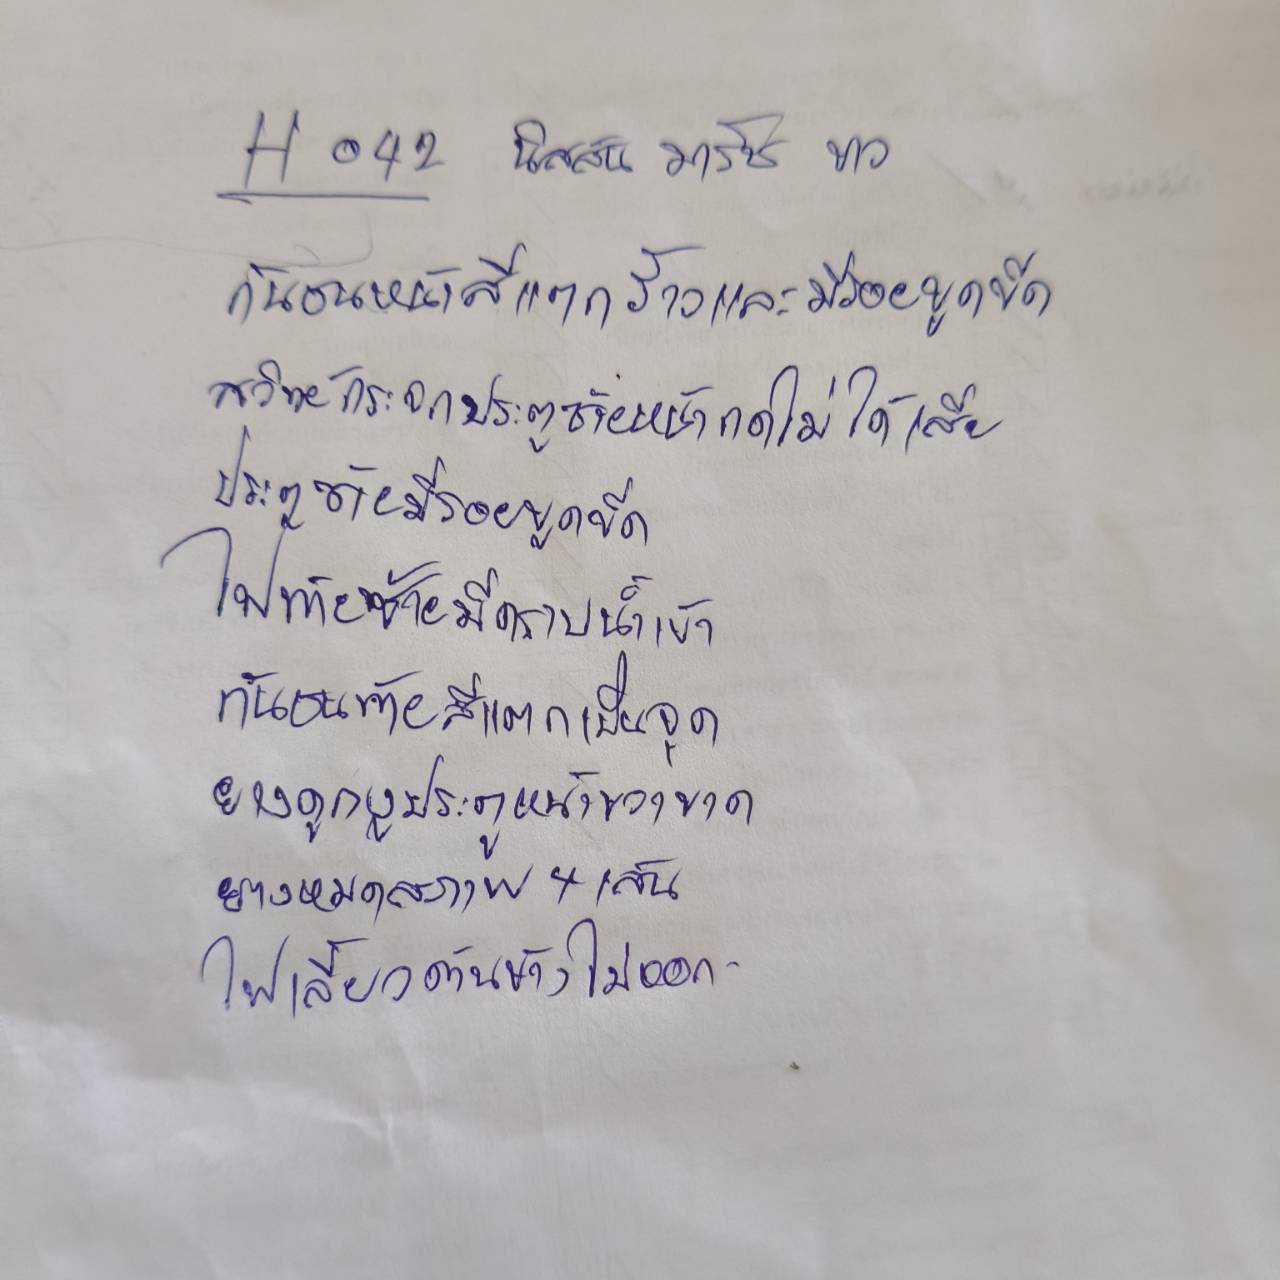 H 042 นิสสัน มาร์ช ขาว
กันชนหน้าสีแตกร้าวและมีรอยขูดขีด
สวิทย์กระจกประตูซ้ายหน้ากดไม่ได้เสีย
ประตูซ้ายมีรอยขูดขีด
ไฟท้ายซ้ายมีคราบน้ำเข้า
กันชนท้ายสีแตกเป็นจุด
ยางดูกงูประตูหน้าขวาขาด
ยางหมดสภาพ 4 เส้น
ไฟเลี้ยวด้านข้างไม่ออก